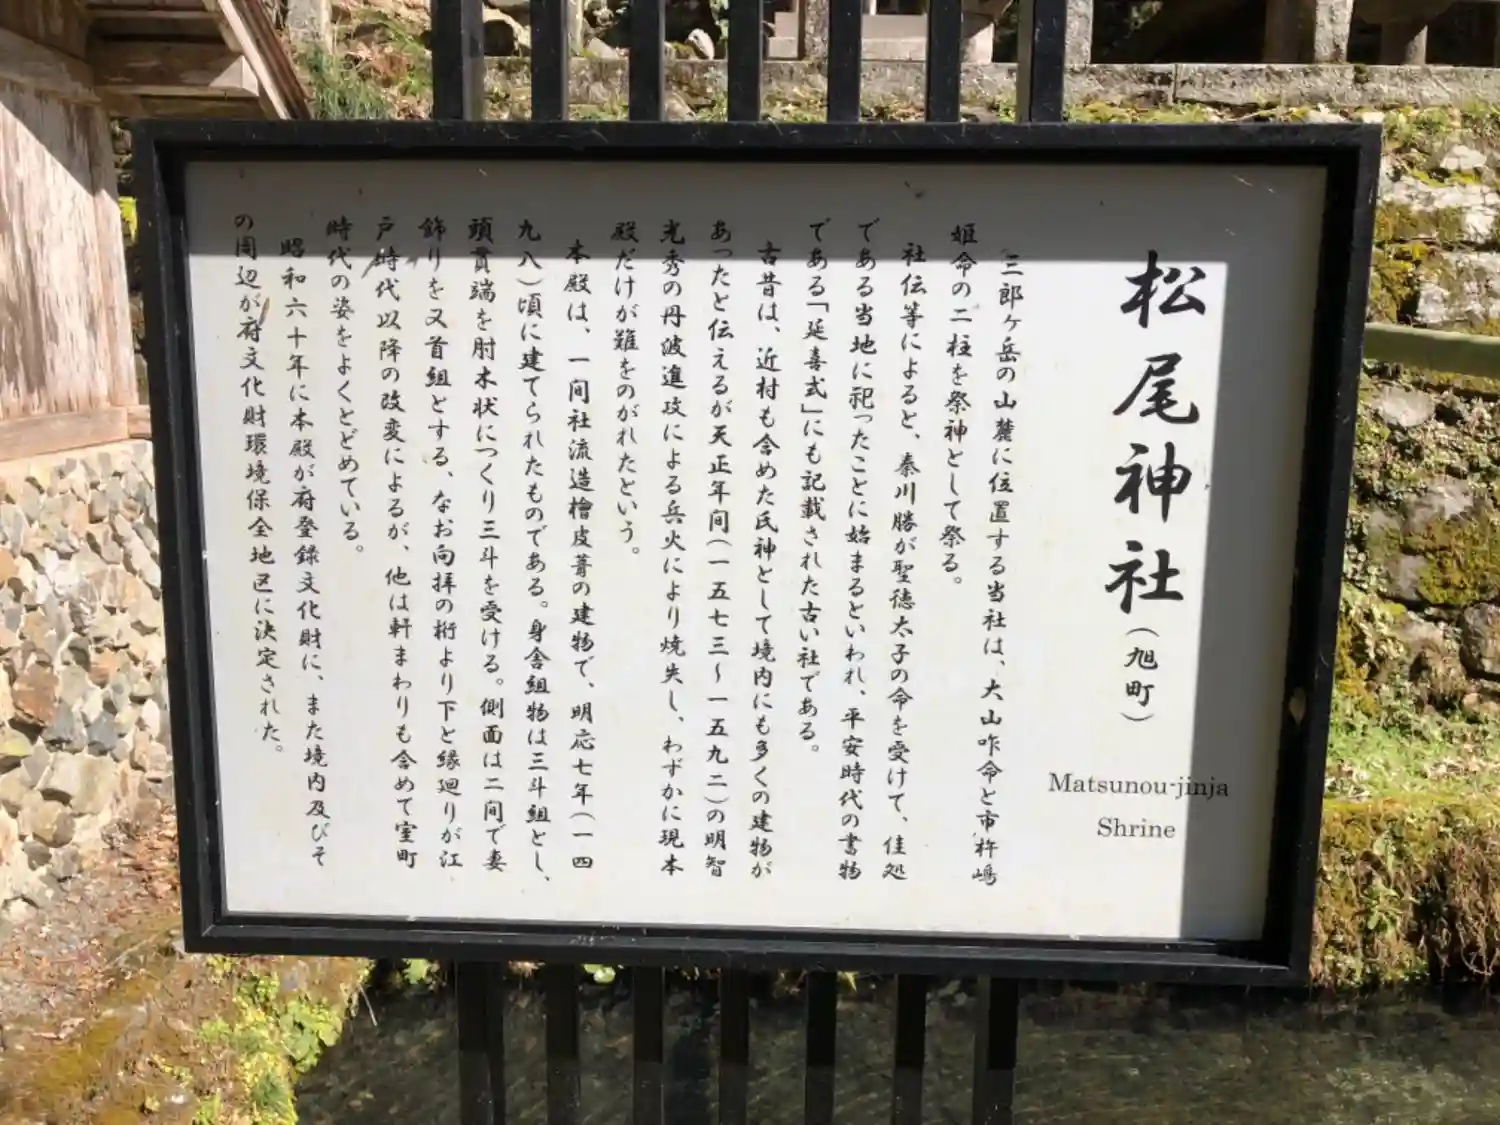 松尾神社(旭町)
Matsunou-jinja
Shrine
三郎ヶ岳の山麓に位置する当社は、大山咋命と市杵嶋
姫命の二柱を祭神として祭る。
社伝等によると、秦川勝が聖徳太子の命を受けて、佳処
である当地に祀ったことに始まるといわれ、平安時代の書物
である「延喜式」にも記載された古い社である。
古昔は、近村も含めた氏神として境内にも多くの建物が
あったと伝えるが天正年間(一五七三〜一五九二)の明智
光秀の丹波進攻による兵火により焼失し、わずかに現本
殿だけが難をのがれたという。
本殿は、一間社流造檜皮葺の建物で、明応七年(一四
九八)頃に建てられたものである。身舎組物は三斗組とし、
頭貫端を肘木状につくり三斗を受ける。側面は二間で妻
飾りを又首組とする、なお向拝の桁より下と縁廻りが江
戸時代以降の改変によるが、他は軒まわりも含めて室町
時代の姿をよくとどめている。
昭和六十年に本殿が府登録文化財に、また境内及びそ
の周辺が府文化財環境保全地区に決定された。